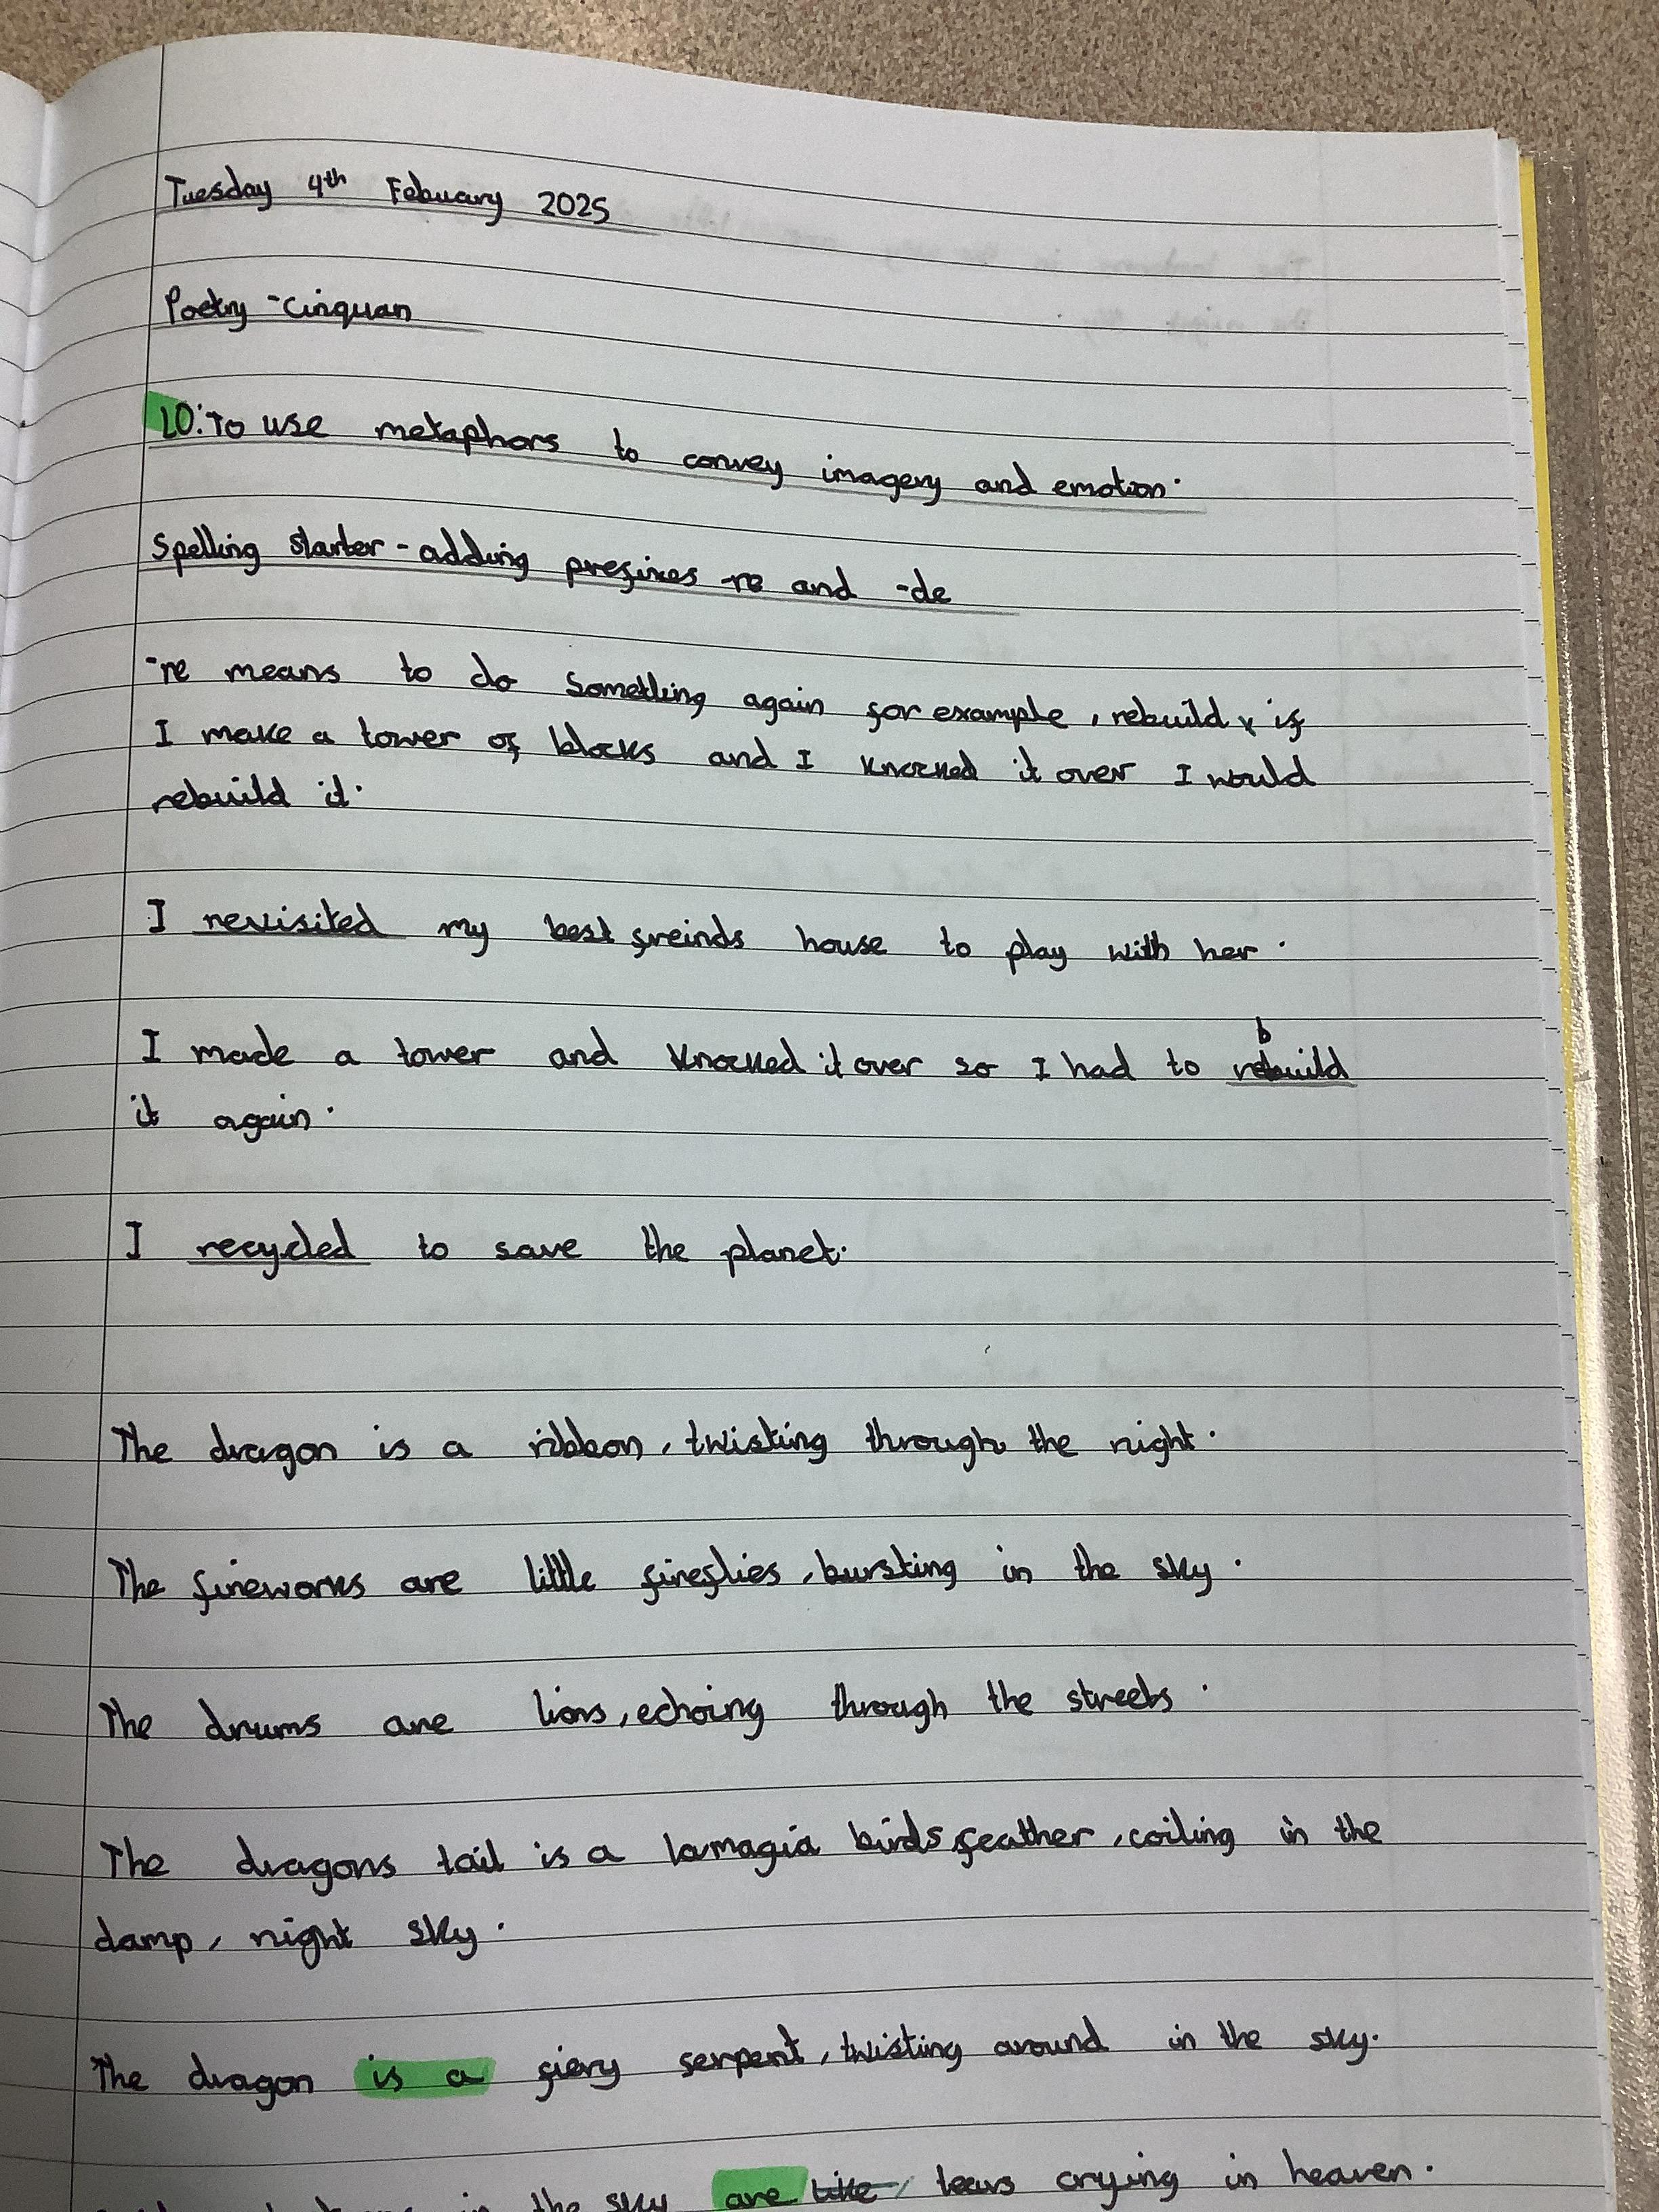 Tuesday 4th Febuary 2025
Poetry - Cinquan
LO: To use metaphors to convey imagery and emotion.
Spelling starter - adding prefixes -re and -de
-re means to do something again for example, rebuild, if
I make a tower of blocks and I knocked it over I would
rebuild it.
I revisited my best freinds house to play with her.
I made a tower and knocked it over so I had to rebuild
b
it again.
I recycled to save the planet.
The dragon is a ribbon, twisting through the night.
The fireworks are little fireflies, bursting in the sky.
The drums are lions, echoing through the streets.
The dragons tail is a lamagia birds feather, coiling in the
damp, night sky.
The dragon is a fiery serpent, twisting around in the sky.
in the sky are like tears crying in heaven.